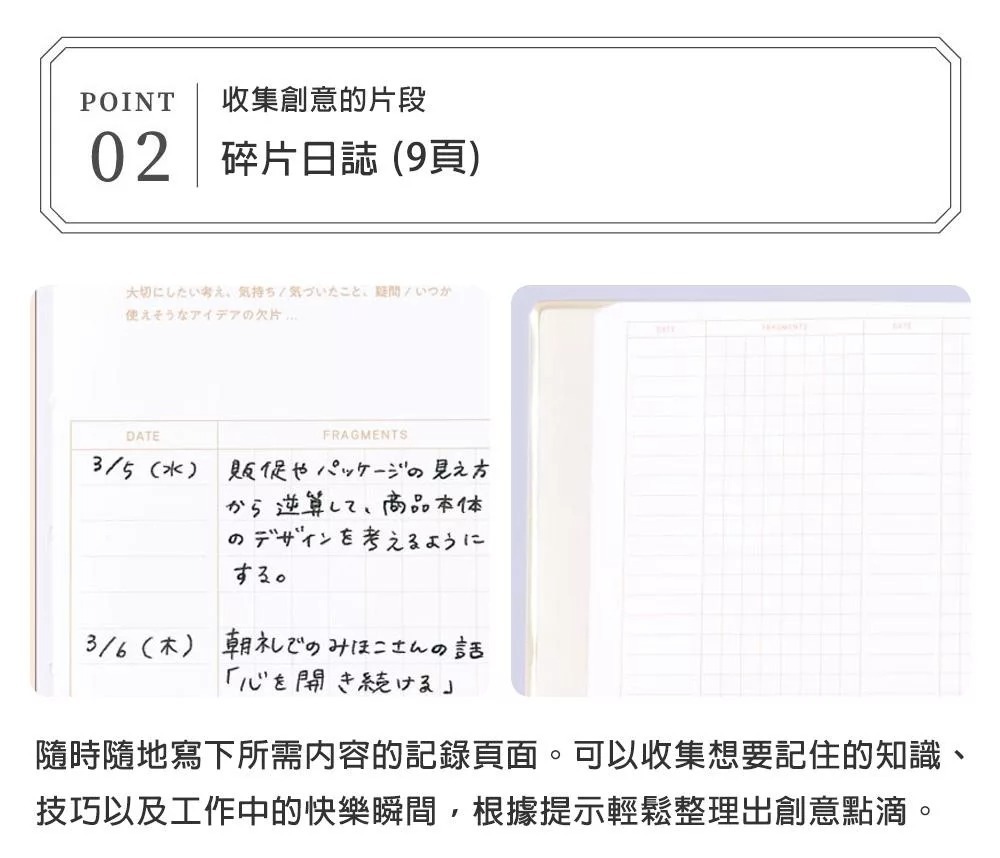 POINT
02
收集創意的片段
碎片日誌 (9頁)
大切にしたい考え、気持ち / 気づいたこと、疑問 / いつか
使えそうなアイデアの欠片 ...
DATE
FRAGMENTS
3/5 (水)
販促やパッケージの見え方
から逆算して、商品本体
のデザインを考えるように
する。
3/6 (木)
朝礼でのみほこさんの話
「心を開き続ける」
DATE
FRAGMENTS
DATE
隨時隨地寫下所需内容的記錄頁面。可以收集想要記住的知識、
技巧以及工作中的快樂瞬間，根據提示輕鬆整理出創意點滴。